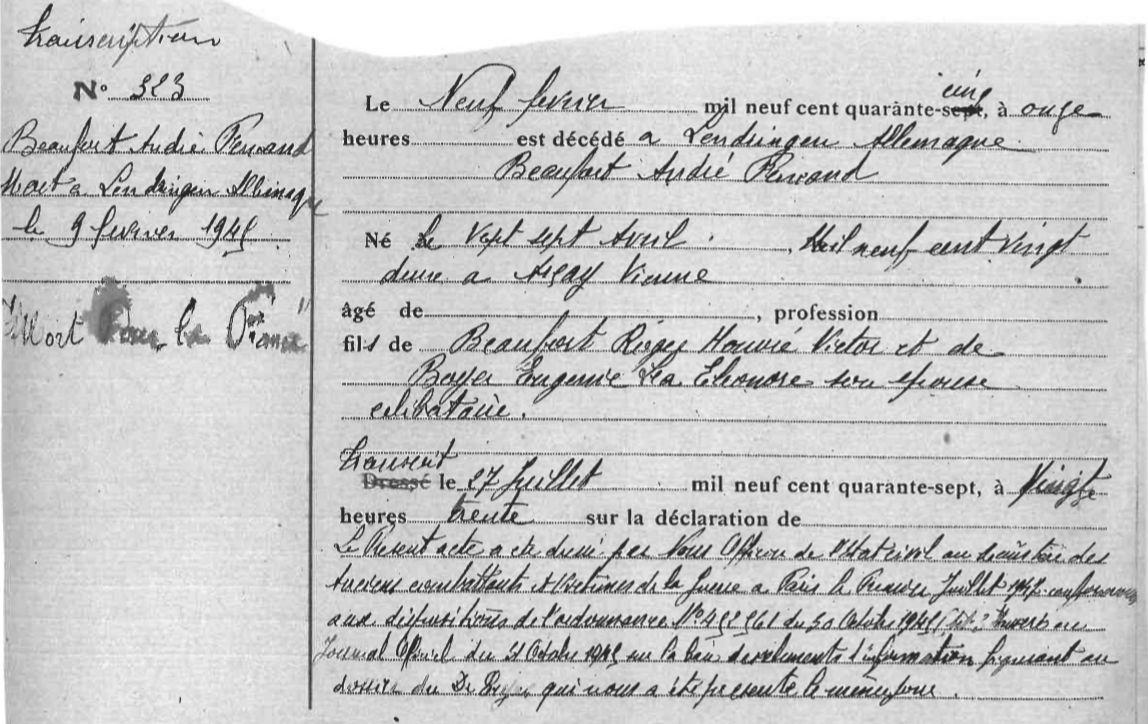 Transcription
N° 323
Beaufort André Fernand
Mort a Lendringen Allemagne
le 9 fevrier 1945
"Mort Pour la France"
Le Neuf fevrier mil neuf cent quarante-sept, cinq à onze
heures est décédé a Lendringen Allemagne
Beaufort André Fernand
Né le Vept sept Avril Mil neuf cent vingt
deux a Vienne
âgé de , profession
fils de Beaufort Victor et de
Boyer Eugenie Eleonore son epouse
celibataire.
transcrit
Dressé le 27 Juillet mil neuf cent quarante-sept, à Vingt
heures trente sur la déclaration de
Le Present acte a ete dressé par Nous Officier de l'Etat civil au des
Anciens combattants et Victimes de la Guerre a Paris le Premier Juillet 1947
aux dispositions de l'ordonnance N° du 30 Octobre 1945 au
Journal Officiel du 31 Octobre 1945 sur la base des elements d'information figurant au
dossier du qui nous a été presente le même jour.